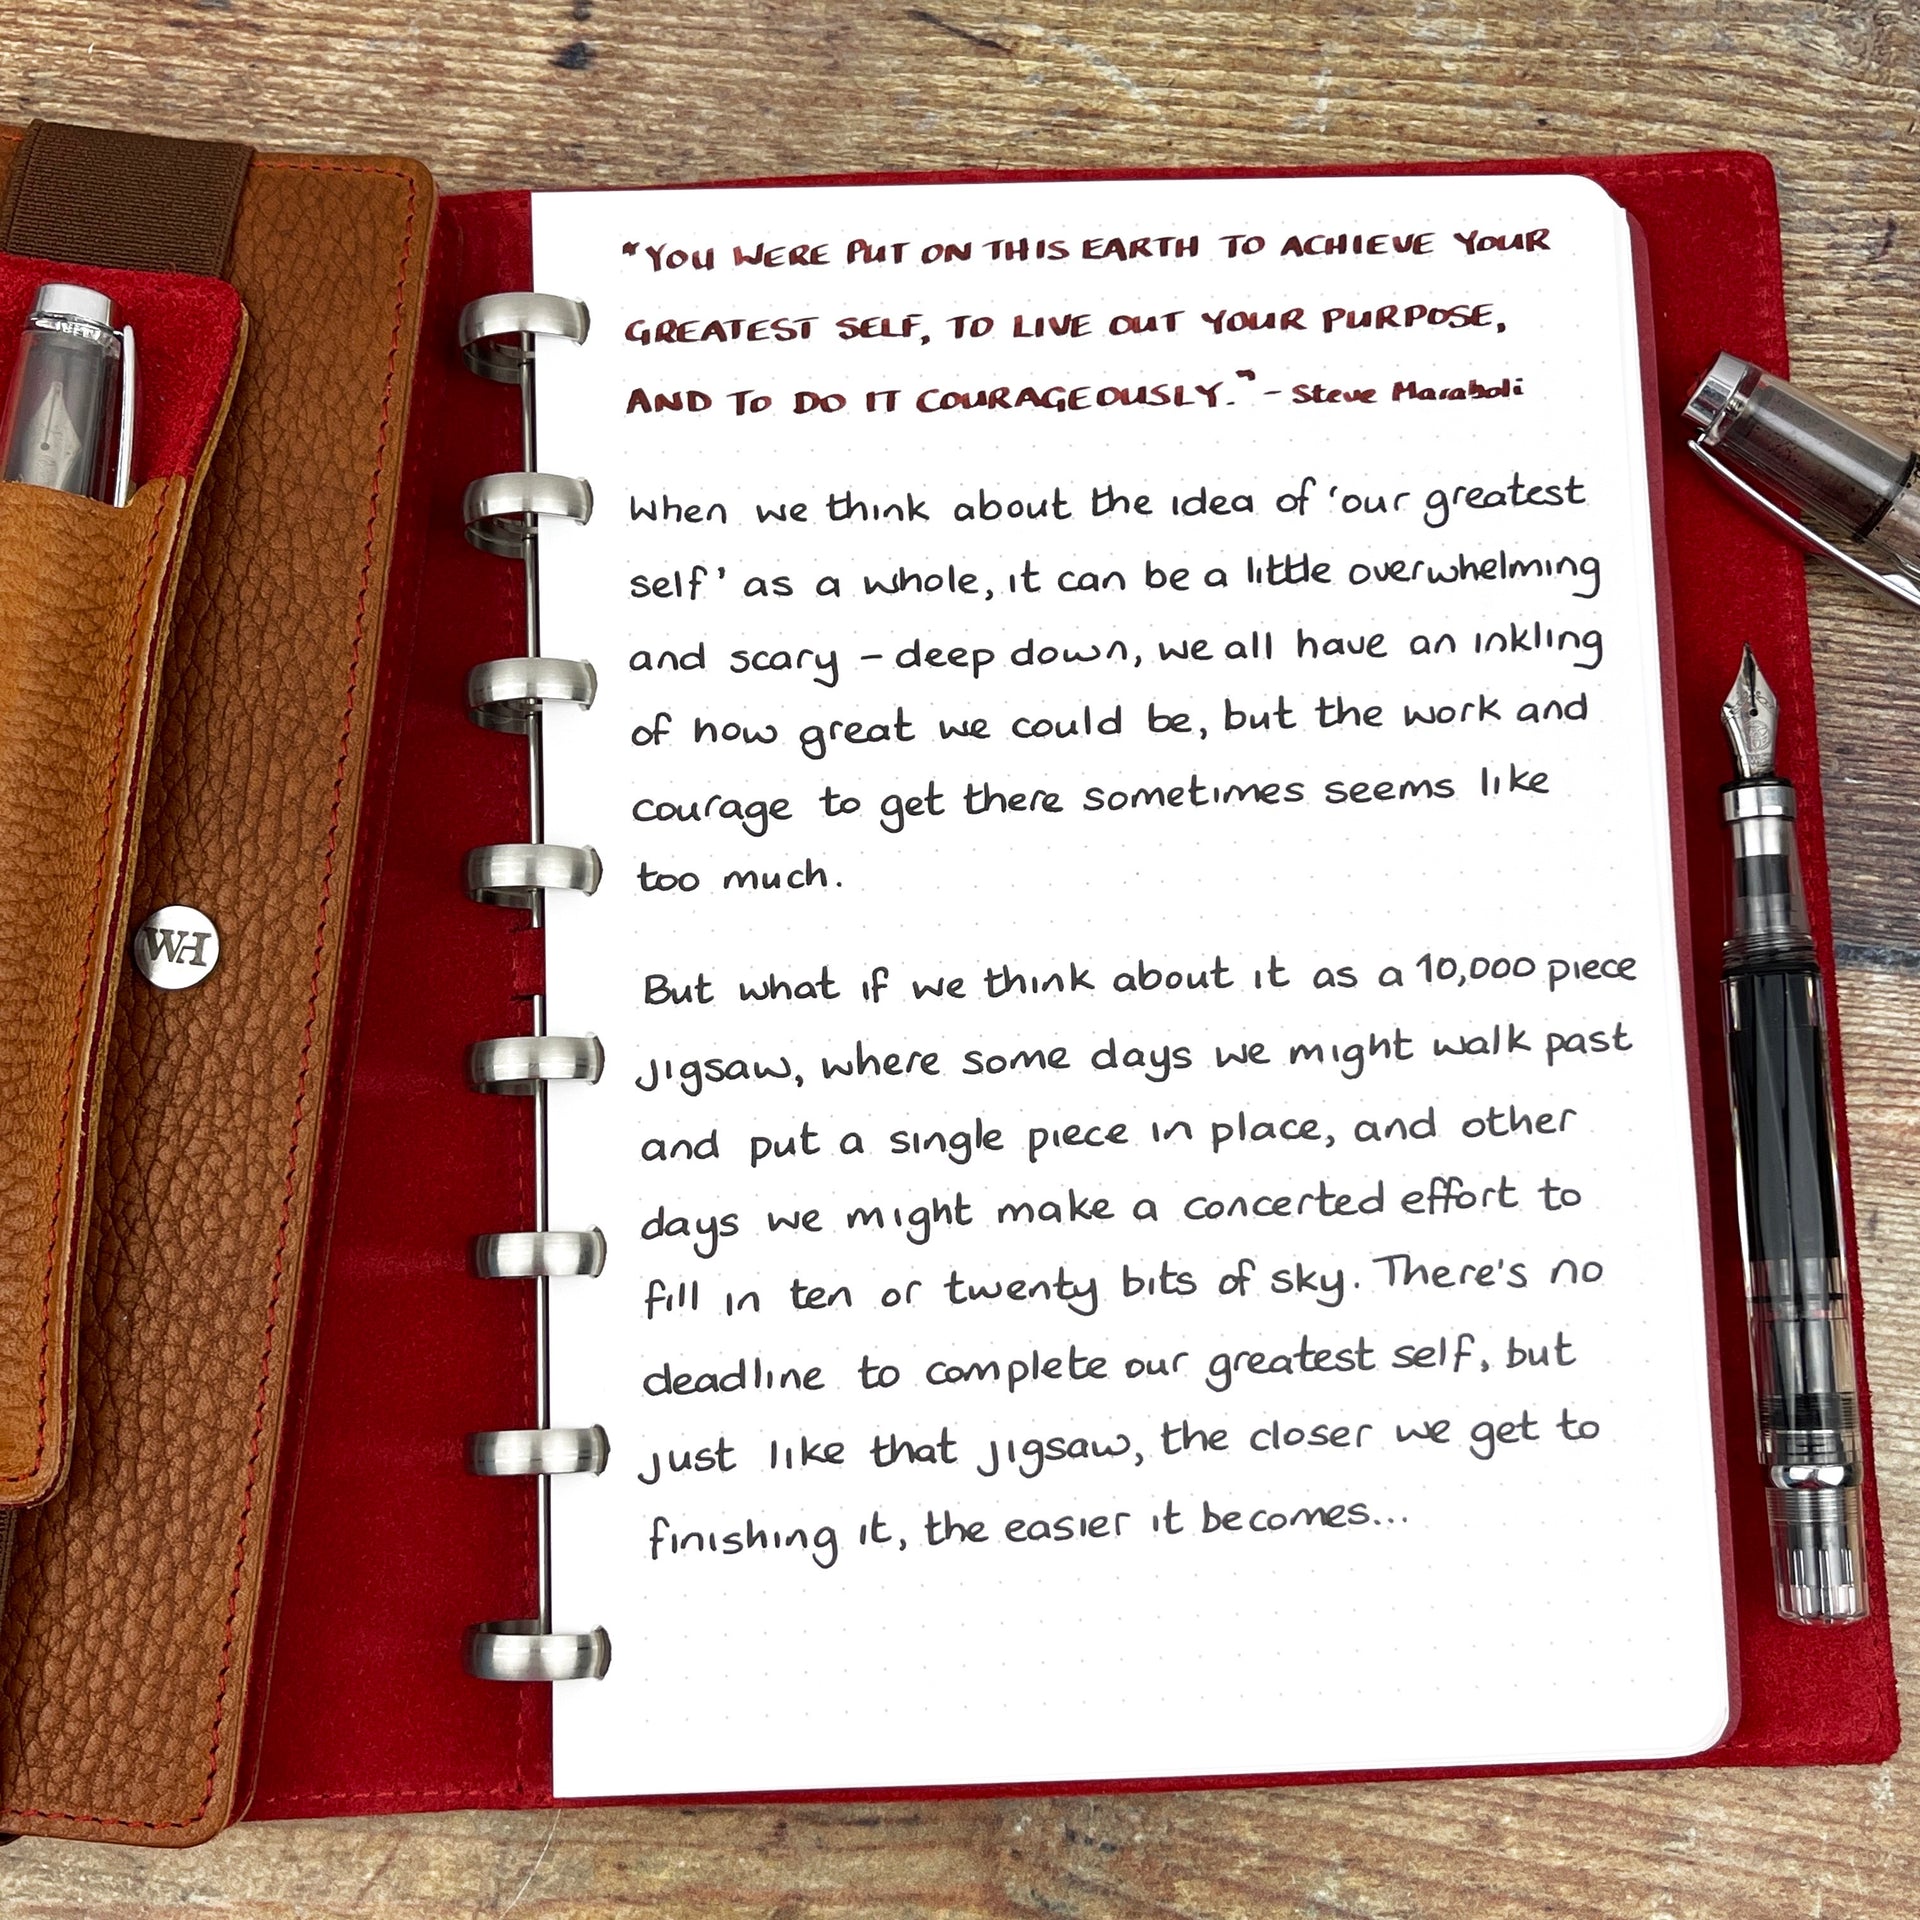 WH
"YOU WERE PUT ON THIS EARTH TO ACHIEVE YOUR
GREATEST SELF, TO LIVE OUT YOUR PURPOSE,
AND TO DO IT COURAGEOUSLY." - Steve Maraboli
When we think about the idea of 'our greatest
self' as a whole, it can be a little overwhelming
and scary - deep down, we all have an inkling
of how great we could be, but the work and
courage to get there sometimes seems like
too much.
But what if we think about it as a 10,000 piece
jigsaw, where some days we might walk past
and put a single piece in place, and other
days we might make a concerted effort to
fill in ten or twenty bits of sky. There's no
deadline to complete our greatest self, but
just like that jigsaw, the closer we get to
finishing it, the easier it becomes...